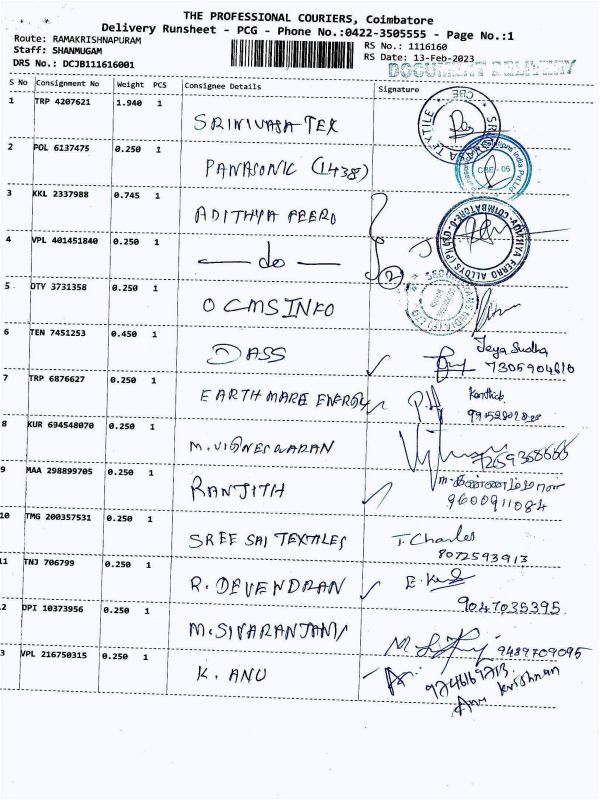 THE PROFESSIONAL COURIERS, Coimbatore
Delivery Runsheet - PCG - Phone No.:0422-3505555 - Page No.:1
Route: RAMAKRISHNAPURAM
RS No.: 1116160
Staff: SHANMUGAM
RS Date: 13-Feb-2023
DRS No.: DCJB111616001
DOCUMENT DELIVERY
S No Consignment No Weight PCS Consignee Details Signature
1 TRP 4207621 1.940 1 SRINIVASA TEX
2 POL 6137475 0.250 1 PANASONIC (1438)
CBE - 06
3 KKL 2337988 0.745 1 ADITHYA FEERO
4 VPL 401451840 0.250 1 — do — 2
5 OTY 3731358 0.250 1 O CMS INFO
6 TEN 7451253 0.450 1 DASS Jeya Sudha
7305904610
7 TRP 6876627 0.250 1 EARTH MARE ENERGY Karthick
8 KUR 694548070 0.250 1 M.VIGNESWARAN
7259368666
9 MAA 298899705 0.250 1 RANJITH
9600911084
10 TMG 200357531 0.250 1 SREE SAI TEXTILES J. Charles
8072593913
11 TNJ 706799 0.250 1 R. DEVENDRAN
9047035395
2 DPI 10373956 0.250 1 M.SIVARANJANI
9489709095
3 VPL 216750315 0.250 1 K. ANU
9746169213
Anu krishnan